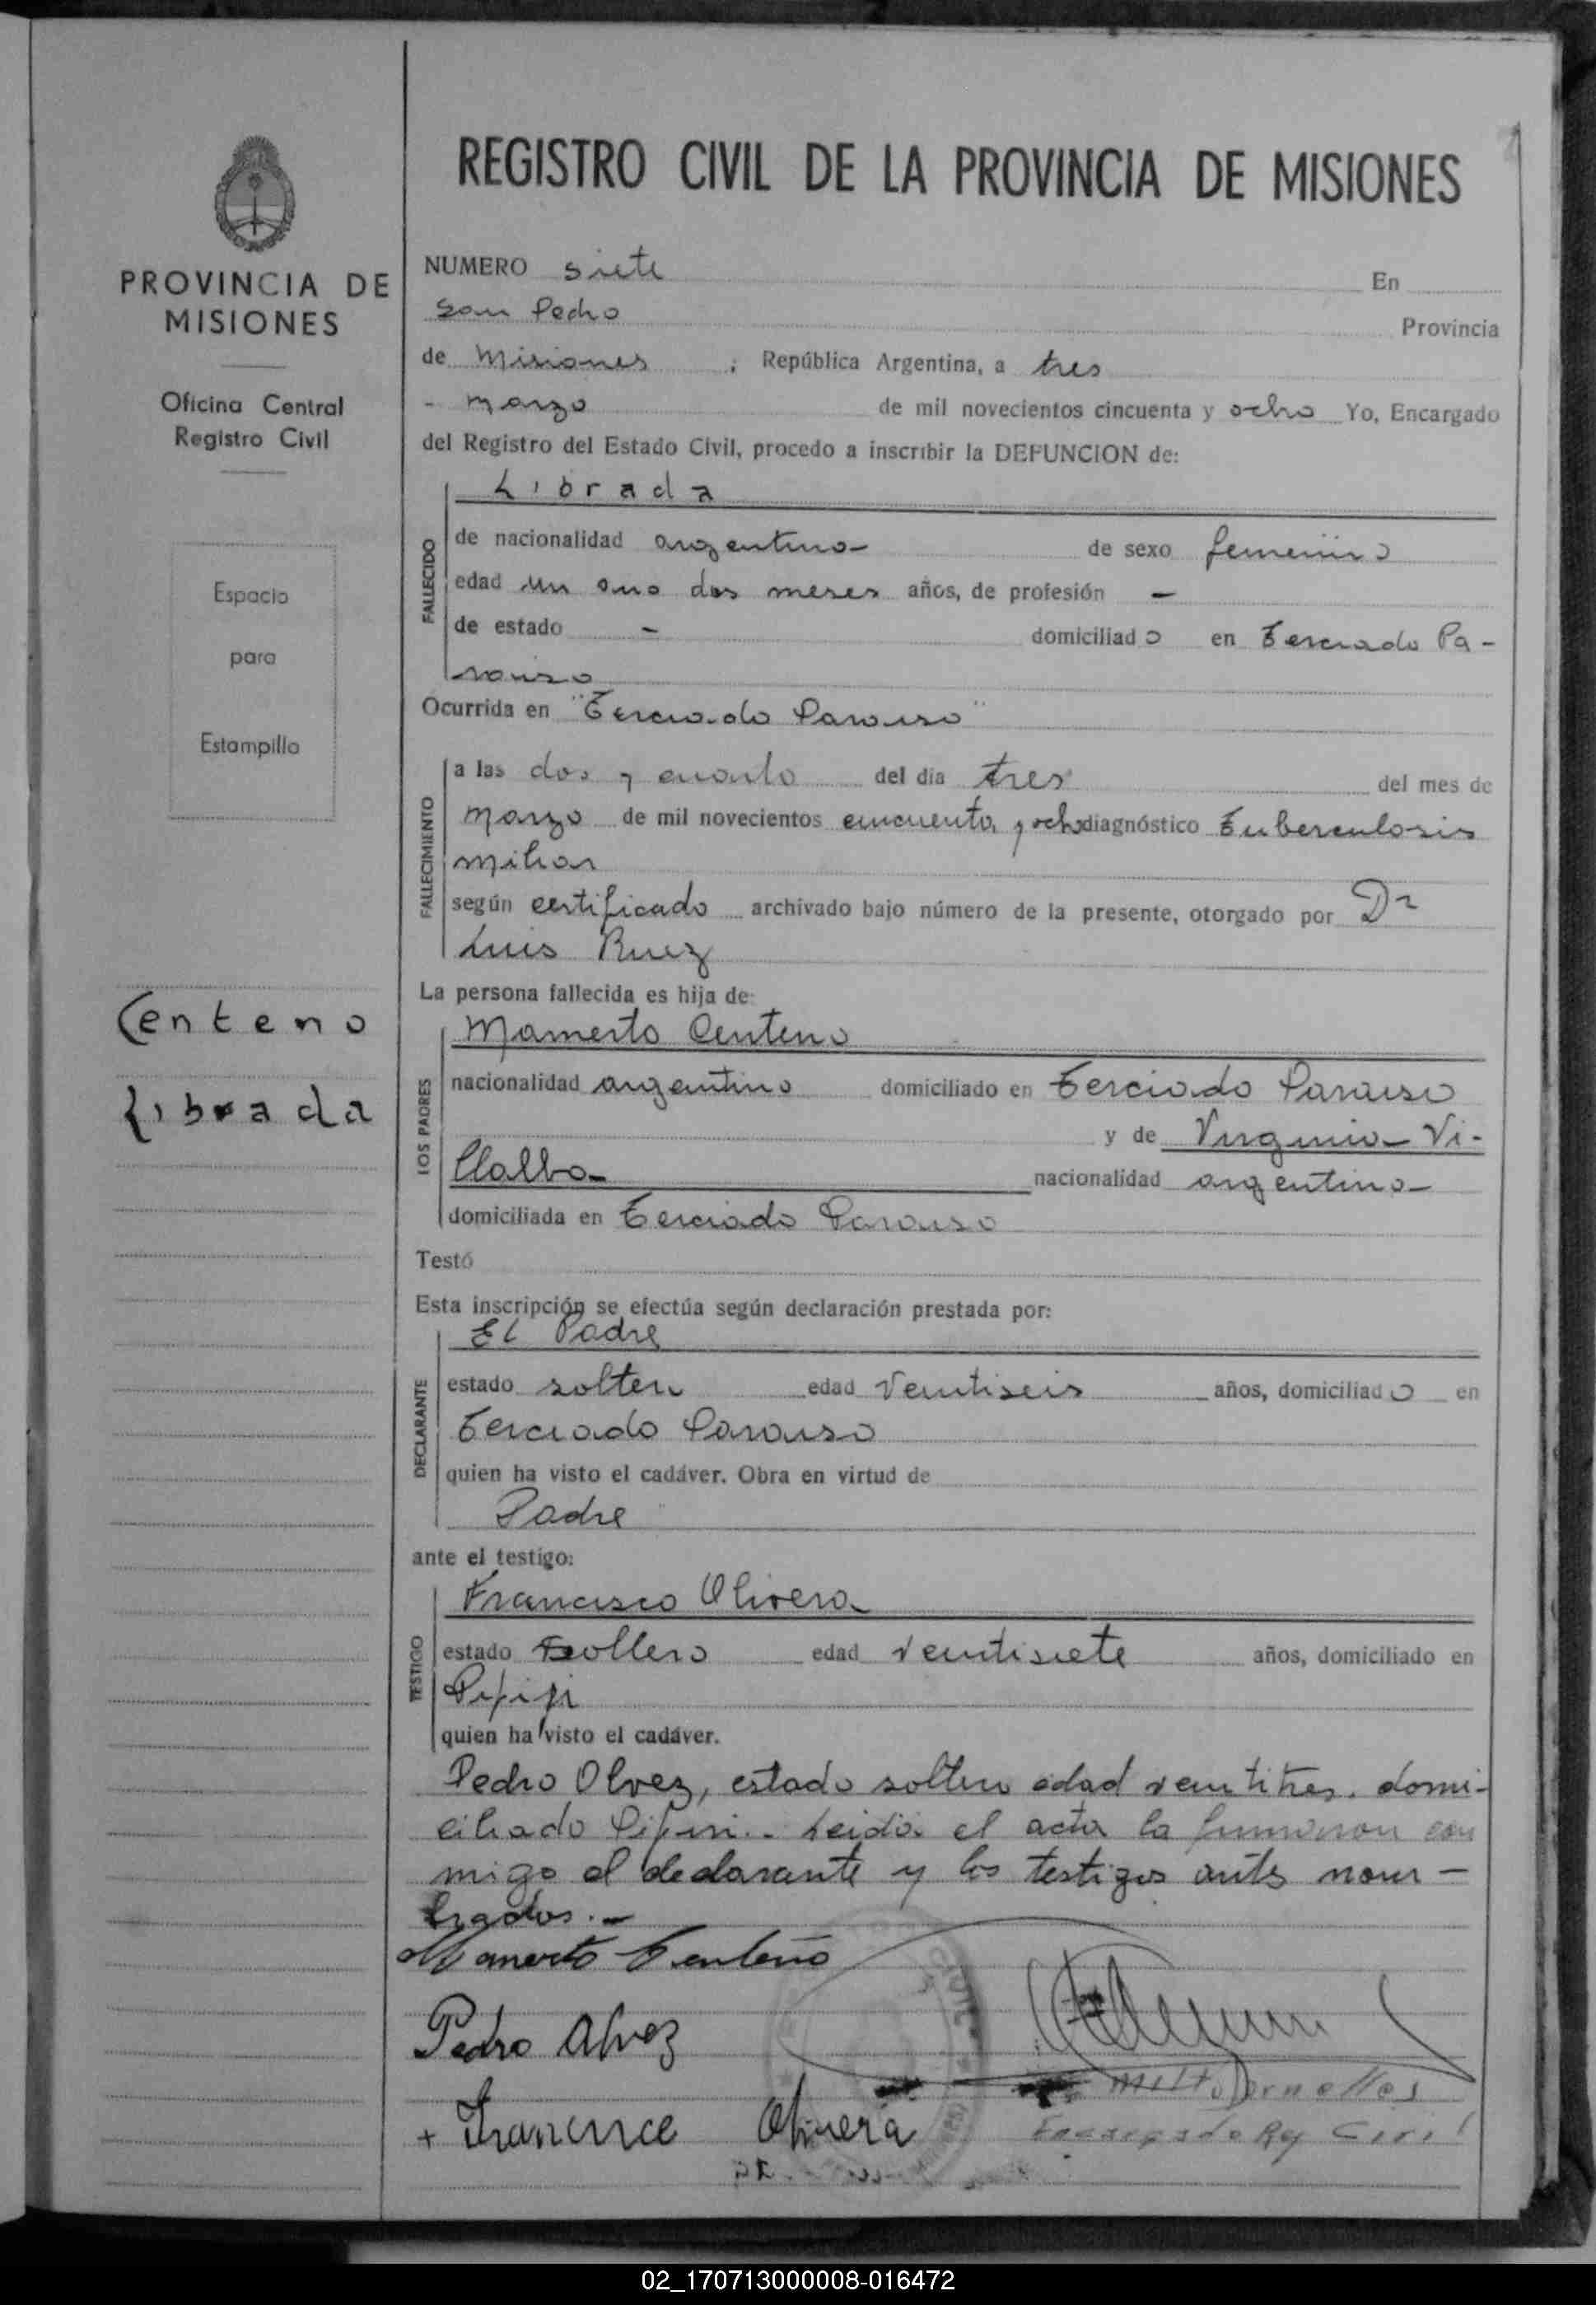 REGISTRO CIVIL DE LA PROVINCIA DE MISIONES
PROVINCIA DE
MISIONES
Oficina Central
Registro Civil
Espacio
para
Estampilla
Centeno
Librada
NUMERO siete En
San Pedro Provincia
de Misiones ; República Argentina, a tres
- marzo de mil novecientos cincuenta y ocho Yo, Encargado
del Registro del Estado Civil, procedo a inscribir la DEFUNCION de:
Librada
FALLECIDO
de nacionalidad argentina de sexo femenino
edad un ano dos meses años, de profesión -
de estado - domiciliado en Terciado Pa-
raiso
Ocurrida en "Terciado Paraiso"
FALLECIMIENTO
a las dos y cuarto del día tres del mes de
marzo de mil novecientos cincuenta y ocho diagnóstico Tuberculosis
miliar
según certificado archivado bajo número de la presente, otorgado por Dr
Luis Ruez
La persona fallecida es hija de:
LOS PADRES
Mamerto Centeno
nacionalidad argentino domiciliado en Terciado Paraiso
y de Virginia Vi-
llalba
nacionalidad argentina
domiciliada en Terciado Paraiso
Testó
Esta inscripción se efectúa según declaración prestada por:
DECLARANTE
El Padre
estado soltero edad Veintiseis años, domiciliado en
Terciado Paraiso
quien ha visto el cadáver. Obra en virtud de
Padre
ante el testigo:
TESTIGO
Francisco Olivera
estado soltero edad veintisiete años, domiciliado en
quien ha visto el cadáver.
Pedro Olvez, estado soltero edad veintitres. domi-
ciliado Leida el acta la firmaron con
migo el declarante y los testigos ants nom-
brados.-
Mamerto Centeno
Pedro Alvez
+ Olivera
Encargado Reg Civil
02_170713000008-016472